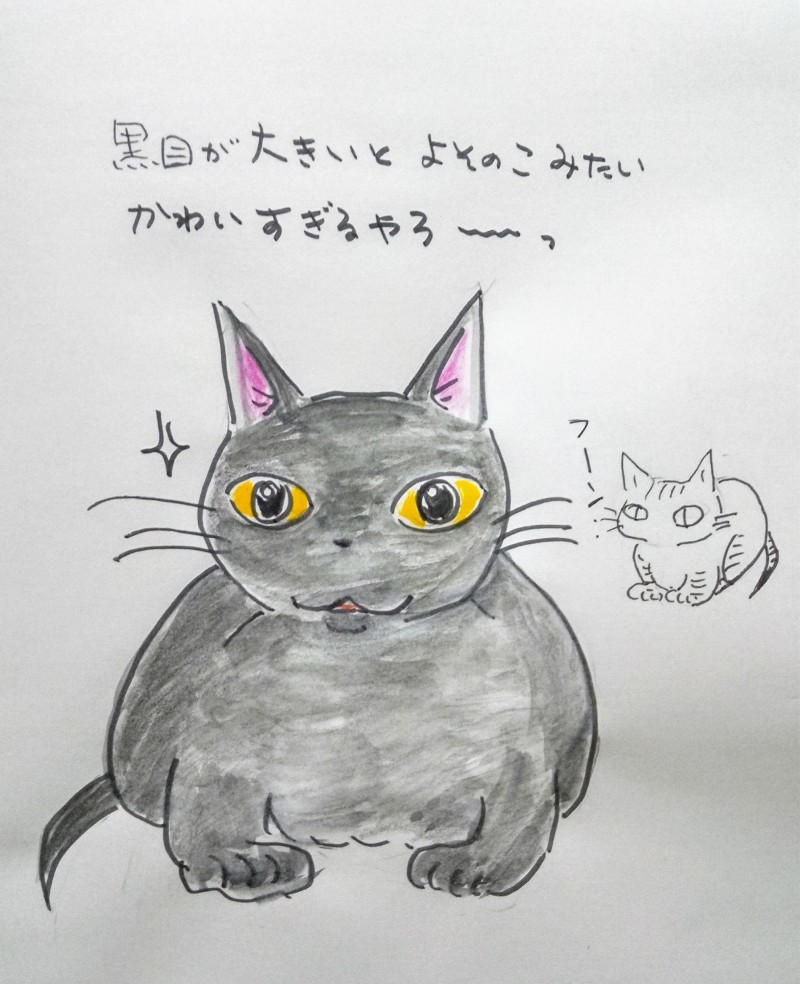 黒目が大きいと よそのこみたい
かわいすぎるやろ〜〜っ
フーッ